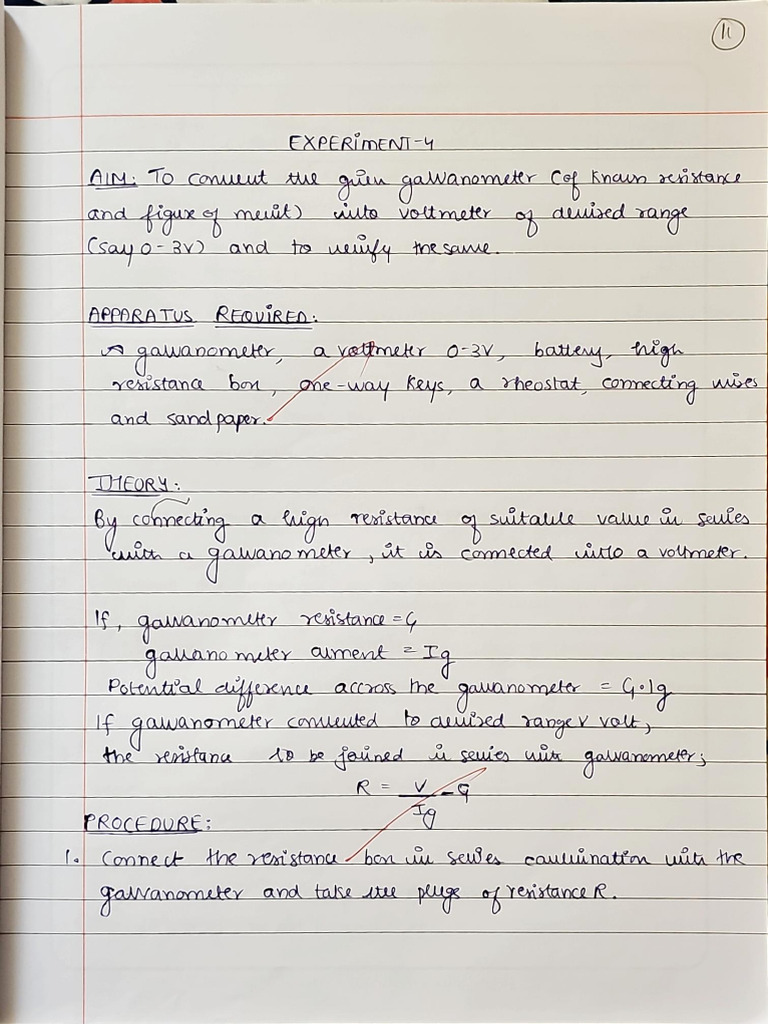 11
EXPERIMENT-4
AIM: To convert the given galvanometer (of known resistance
and figure of merit) into voltmeter of desired range
(say 0-3V) and to verify the same.
APPARATUS REQUIRED:
A galvanometer, a voltmeter 0-3V, battery, high
resistance box, one-way keys, a rheostat, connecting wires
and sand paper.
THEORY:
By connecting a high resistance of suitable value in series
with a galvanometer, it is connected into a voltmeter.
If, galvanometer resistance = G
galvanometer current = Ig
Potential difference accross the galvanometer = G.Ig
If galvanometer converted to desired range V volt,
the resistance to be joined in series with galvanometer;
R = V/Ig - G
PROCEDURE:
1. Connect the resistance box in series combination with the
galvanometer and take the plugs of resistance R.